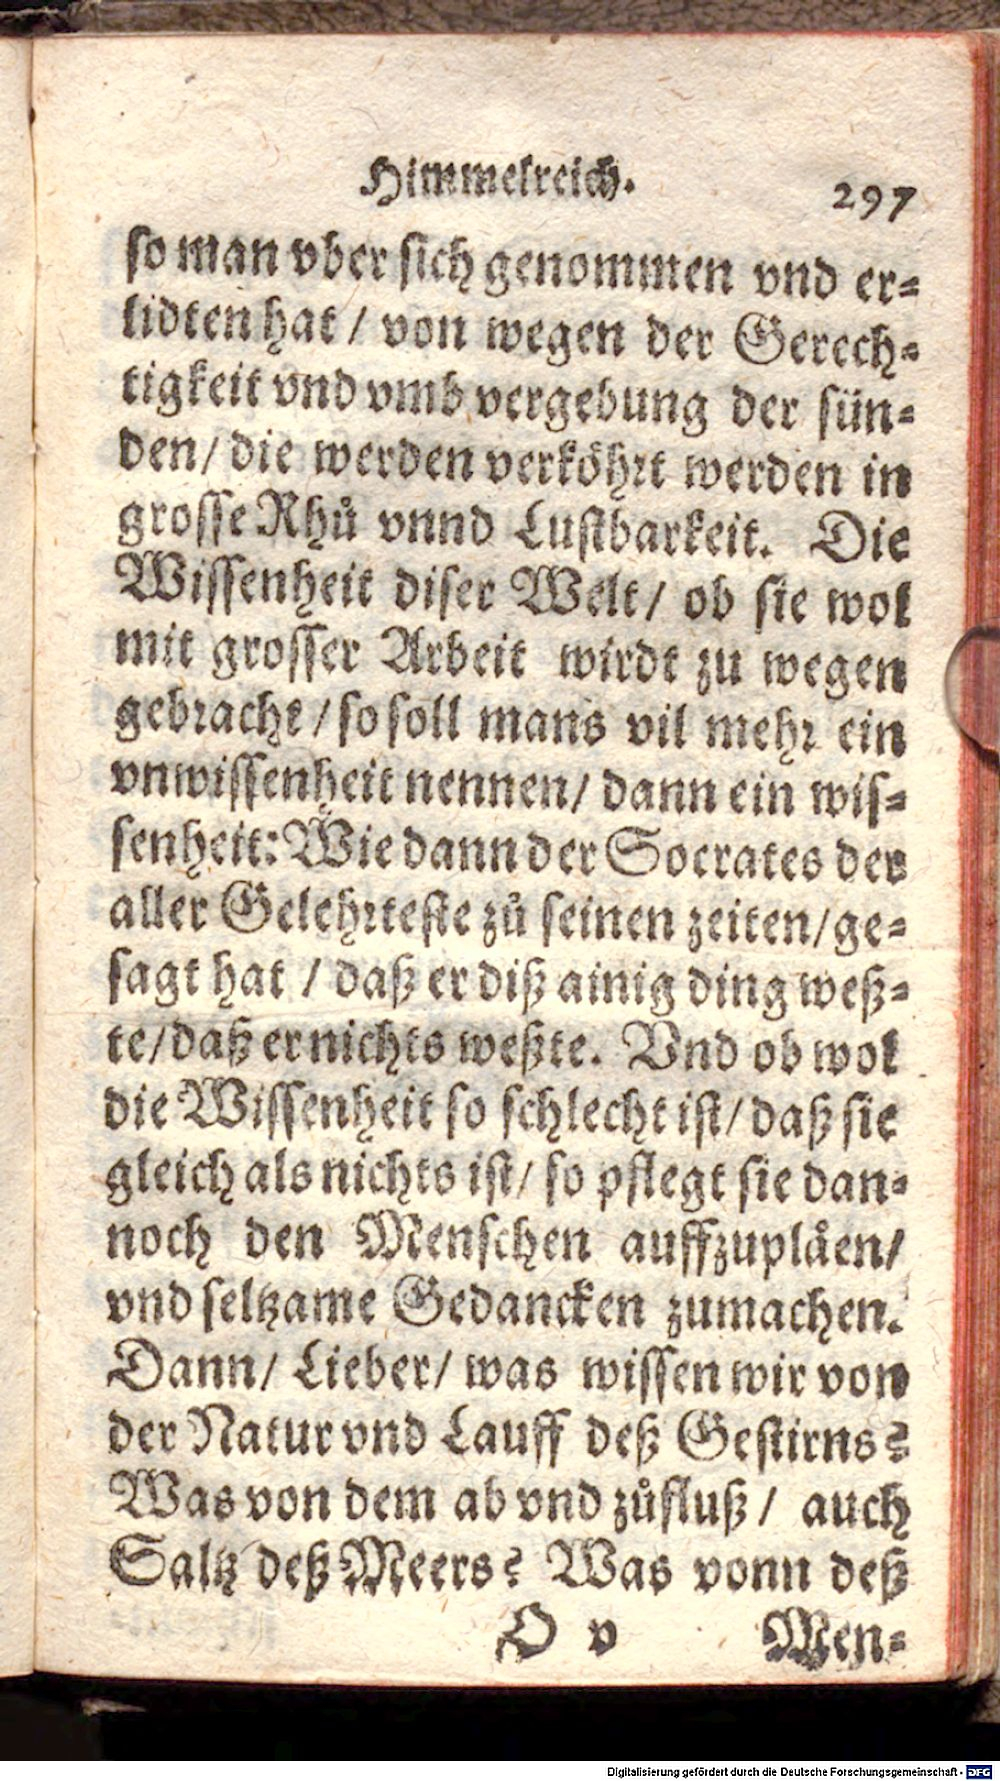 Himmelreich. 297
so man vber sich genommen vnd er-
lidten hat / von wegen der Gerech-
tigkeit vnd vmb vergebung der sün-
den / die werden verköhrt werden in
grosse Rhů vnnd Lustbarkeit. Die
Wissenheit diser Welt / ob sie wol
mit grosser Arbeit wirdt zu wegen
gebracht / so soll mans vil mehr ein
vnwissenheit nennen / dann ein wis-
senheit: Wie dann der Socrates der
aller Gelehrteste zů seinen zeiten / ge-
sagt hat / daß er diß ainig ding weß-
te / daß er nichts weßte. Vnd ob wol
die Wissenheit so schlecht ist / daß sie
gleich als nichts ist / so pflegt sie dan-
noch den Menschen auffzupläen /
vnd seltzame Gedancken zumachen.
Dann / Lieber / was wissen wir von
der Natur vnd Lauff deß Gestirns?
Was von dem ab vnd zůfluß / auch
Saltz deß Meers? Was vonn deß
O v Men-
Digitalisierung gefördert durch die Deutsche Forschungsgemeinschaft - DFG